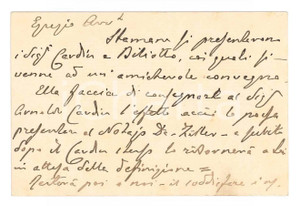 Egregio Avv.
Stamani si presentarono
i Sigg Cardin e Biliotto, coi quali si
venne ad un'amichevole convegno.
Ella faccia di consegnare al Sig
Arnaldo Cardin l'effetto acciò lo possa
presentare al Notajo e subito
dopo il Cardin stesso lo ritornerà a Lei
in attesa della definizione =
poi a noi - il soddisfare i